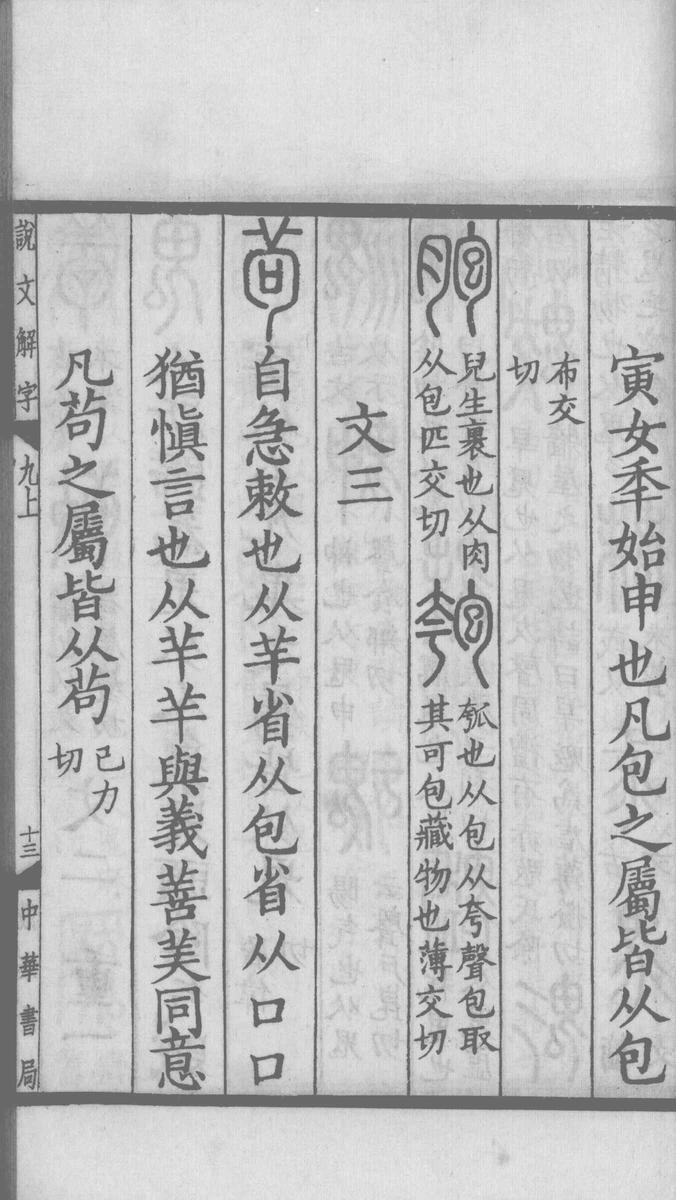 寅女秊始申也凡包之屬皆从包
布交
切
胞
兒生裹也从肉
从包匹交切
匏
瓠也从包从夸聲包取
其可包藏物也薄交切
文三
茍
自急敕也从羊省从包省从口口
猶愼言也从羊羊與義善美同意
凡茍之屬皆从茍
己力
切
說文解字
九上
十三
中華書局